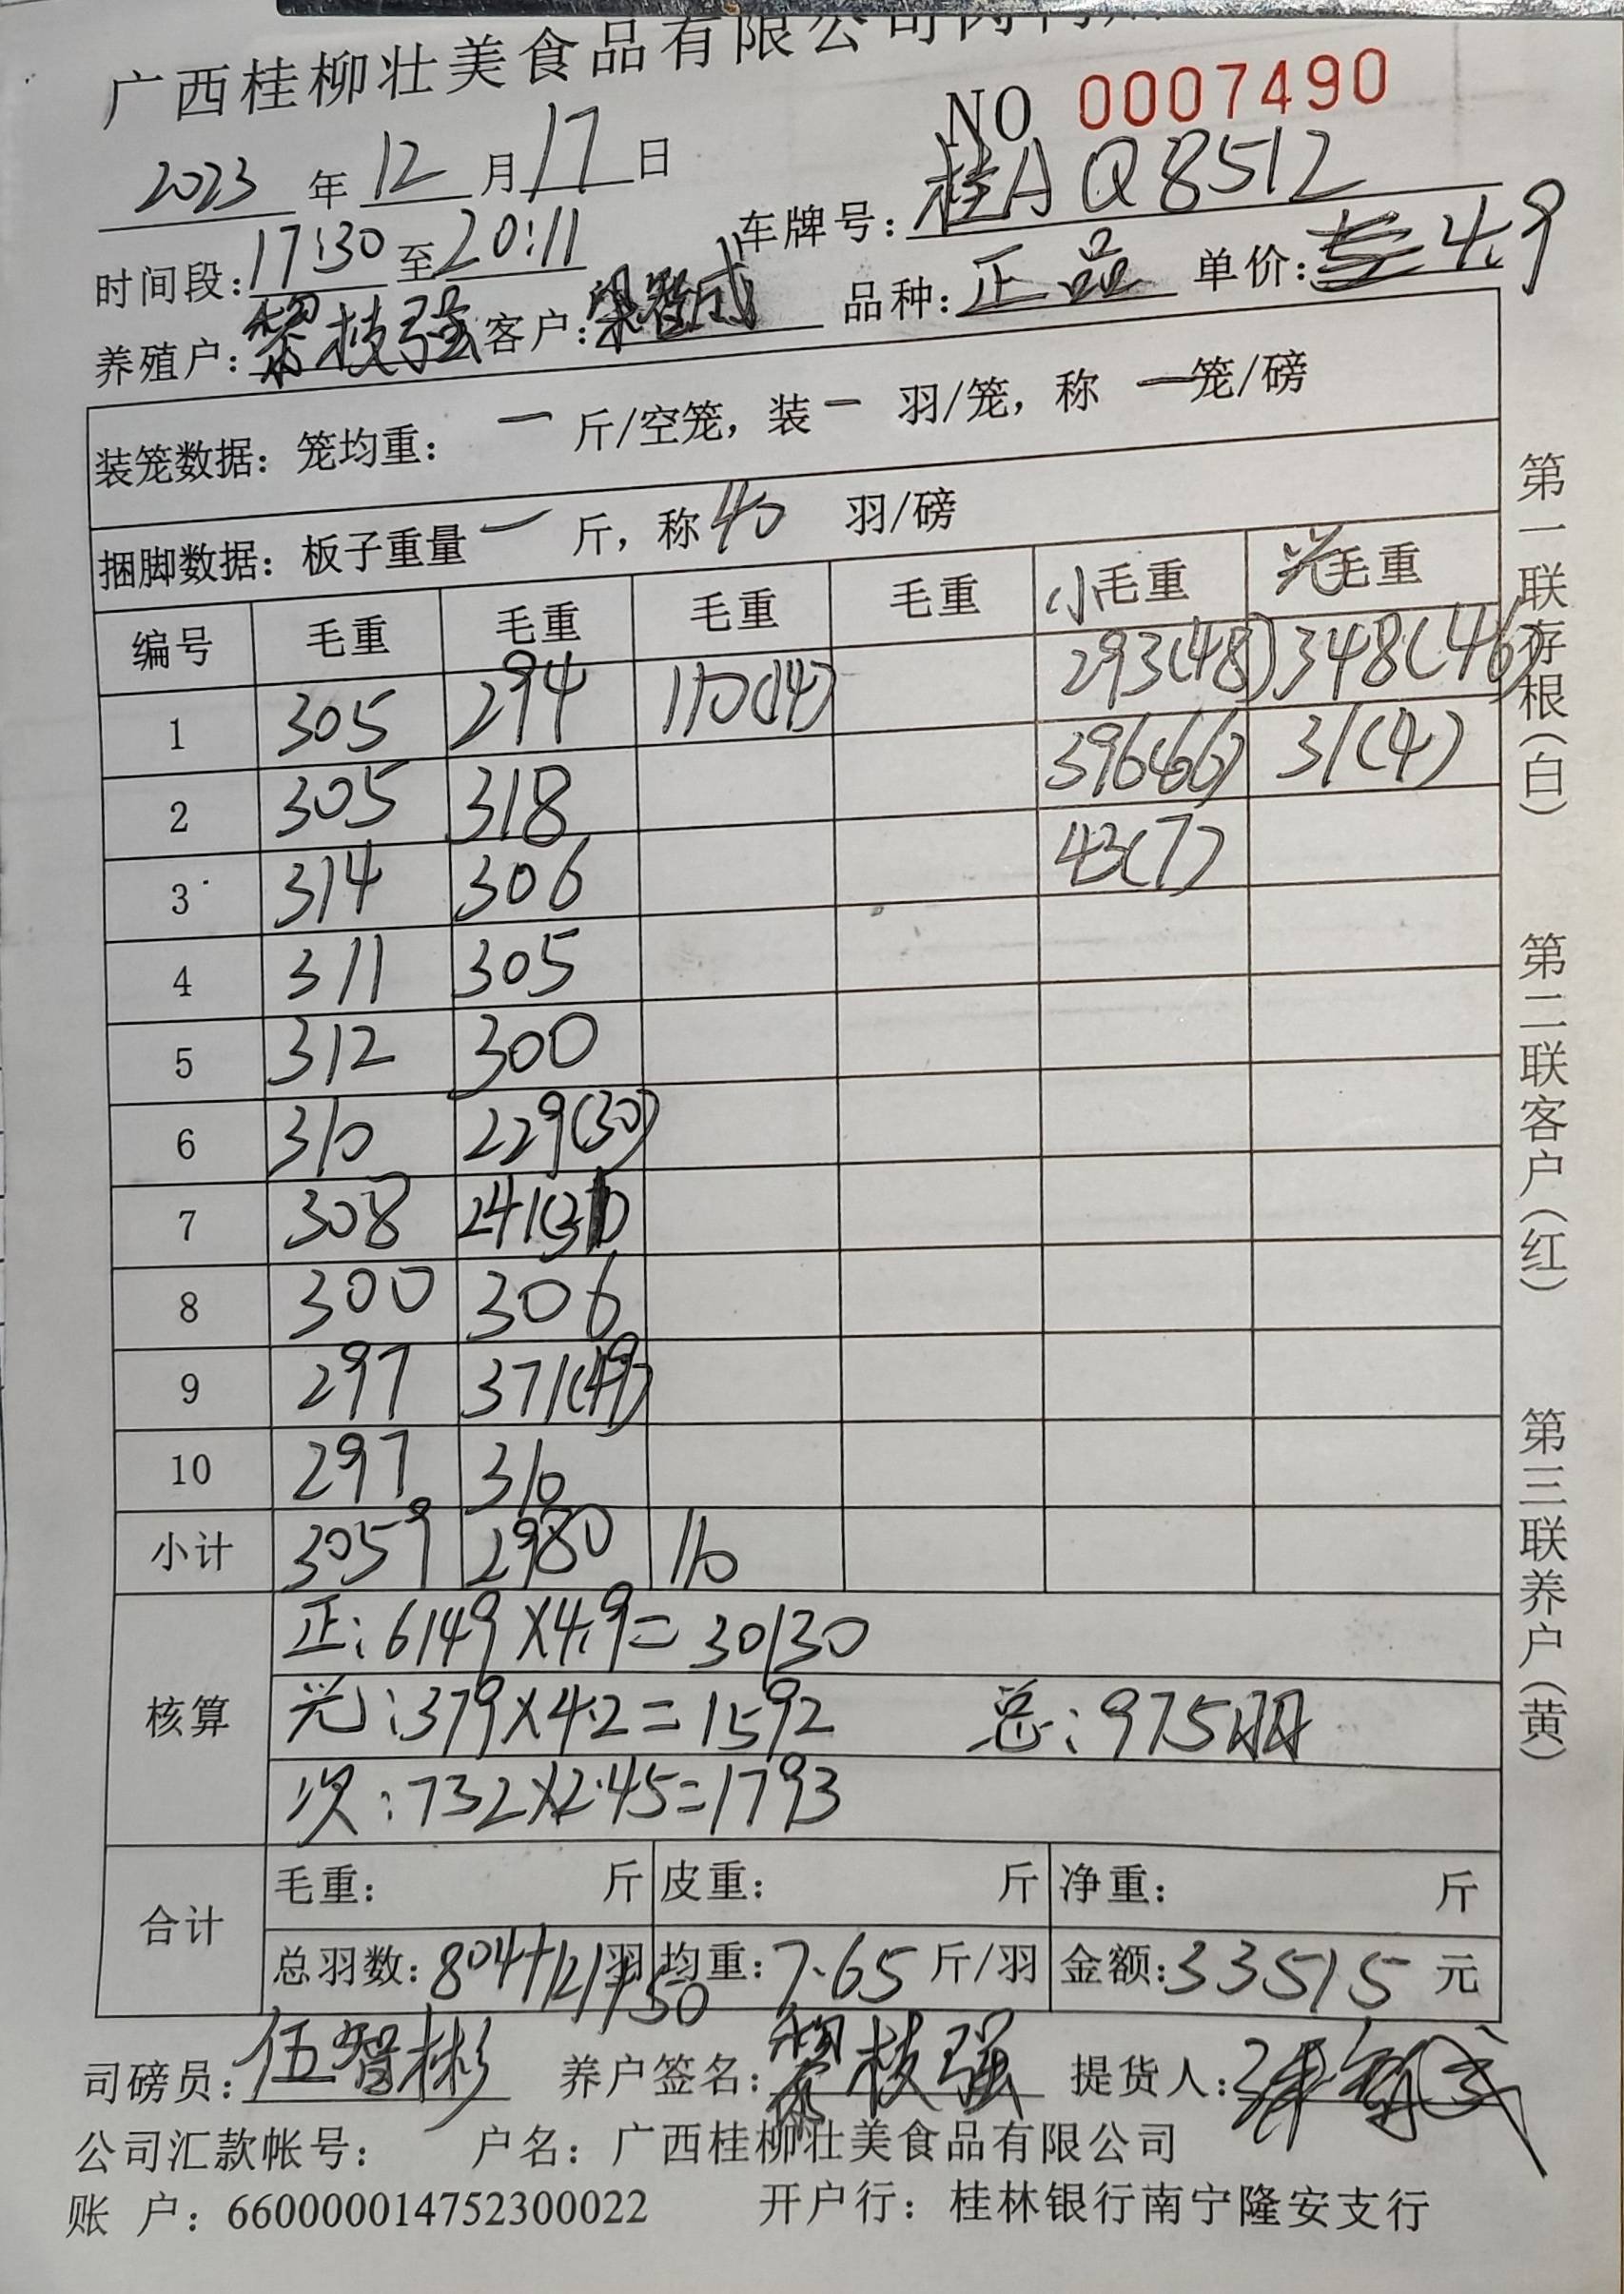 广西桂柳壮美食品有限公司
NO 0007490
2023 年 12 月 17 日
车牌号: 桂A Q8512
时间段: 17:30 至 20:11
品种: 正品 单价: 4.9
养殖户: 黎枝强 客户:
装笼数据: 笼均重: 一 斤/空笼, 装 一 羽/笼, 称 一 笼/磅
捆脚数据: 板子重量 一 斤, 称 40 羽/磅
编号 毛重 毛重 毛重 毛重 小毛重 光毛重
1 305 294 110(14) 293(48) 348(46)
2 305 318 396(66) 31(4)
3 314 306 43(7)
4 311 305
5 312 300
6 310 229(30)
7 308 241(31)
8 300 306
9 297 371(49)
10 297 310
小计 3059 2980 110
核算
正: 6149×4.9=30130
光: 379×4.2=1592 总: 975羽
次: 732×2.45=1793
合计
毛重: 斤 皮重: 斤 净重: 斤
总羽数: 804+121+50 羽 均重: 7.65 斤/羽 金额: 33515 元
司磅员: 伍智彬 养户签名: 黎枝强 提货人:
公司汇款帐号: 户名: 广西桂柳壮美食品有限公司
账 户: 660000014752300022 开户行: 桂林银行南宁隆安支行
第一联存根(白) 第二联客户(红) 第三联养户(黄)